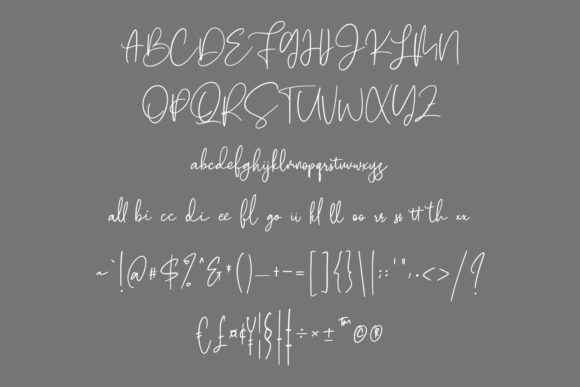 ABCDEFGHIJKLMN
OPQRSTUVWXYZ
abcdefghijklmnopqrstuvwxyz
all bi cc di ee fl go ii kl ll oo rr ss tt th xx
~`!@#$%^&*()_+-=[]{}\|;:'",.<>/?
€£¤¢¥¦§‡†÷×±™©®